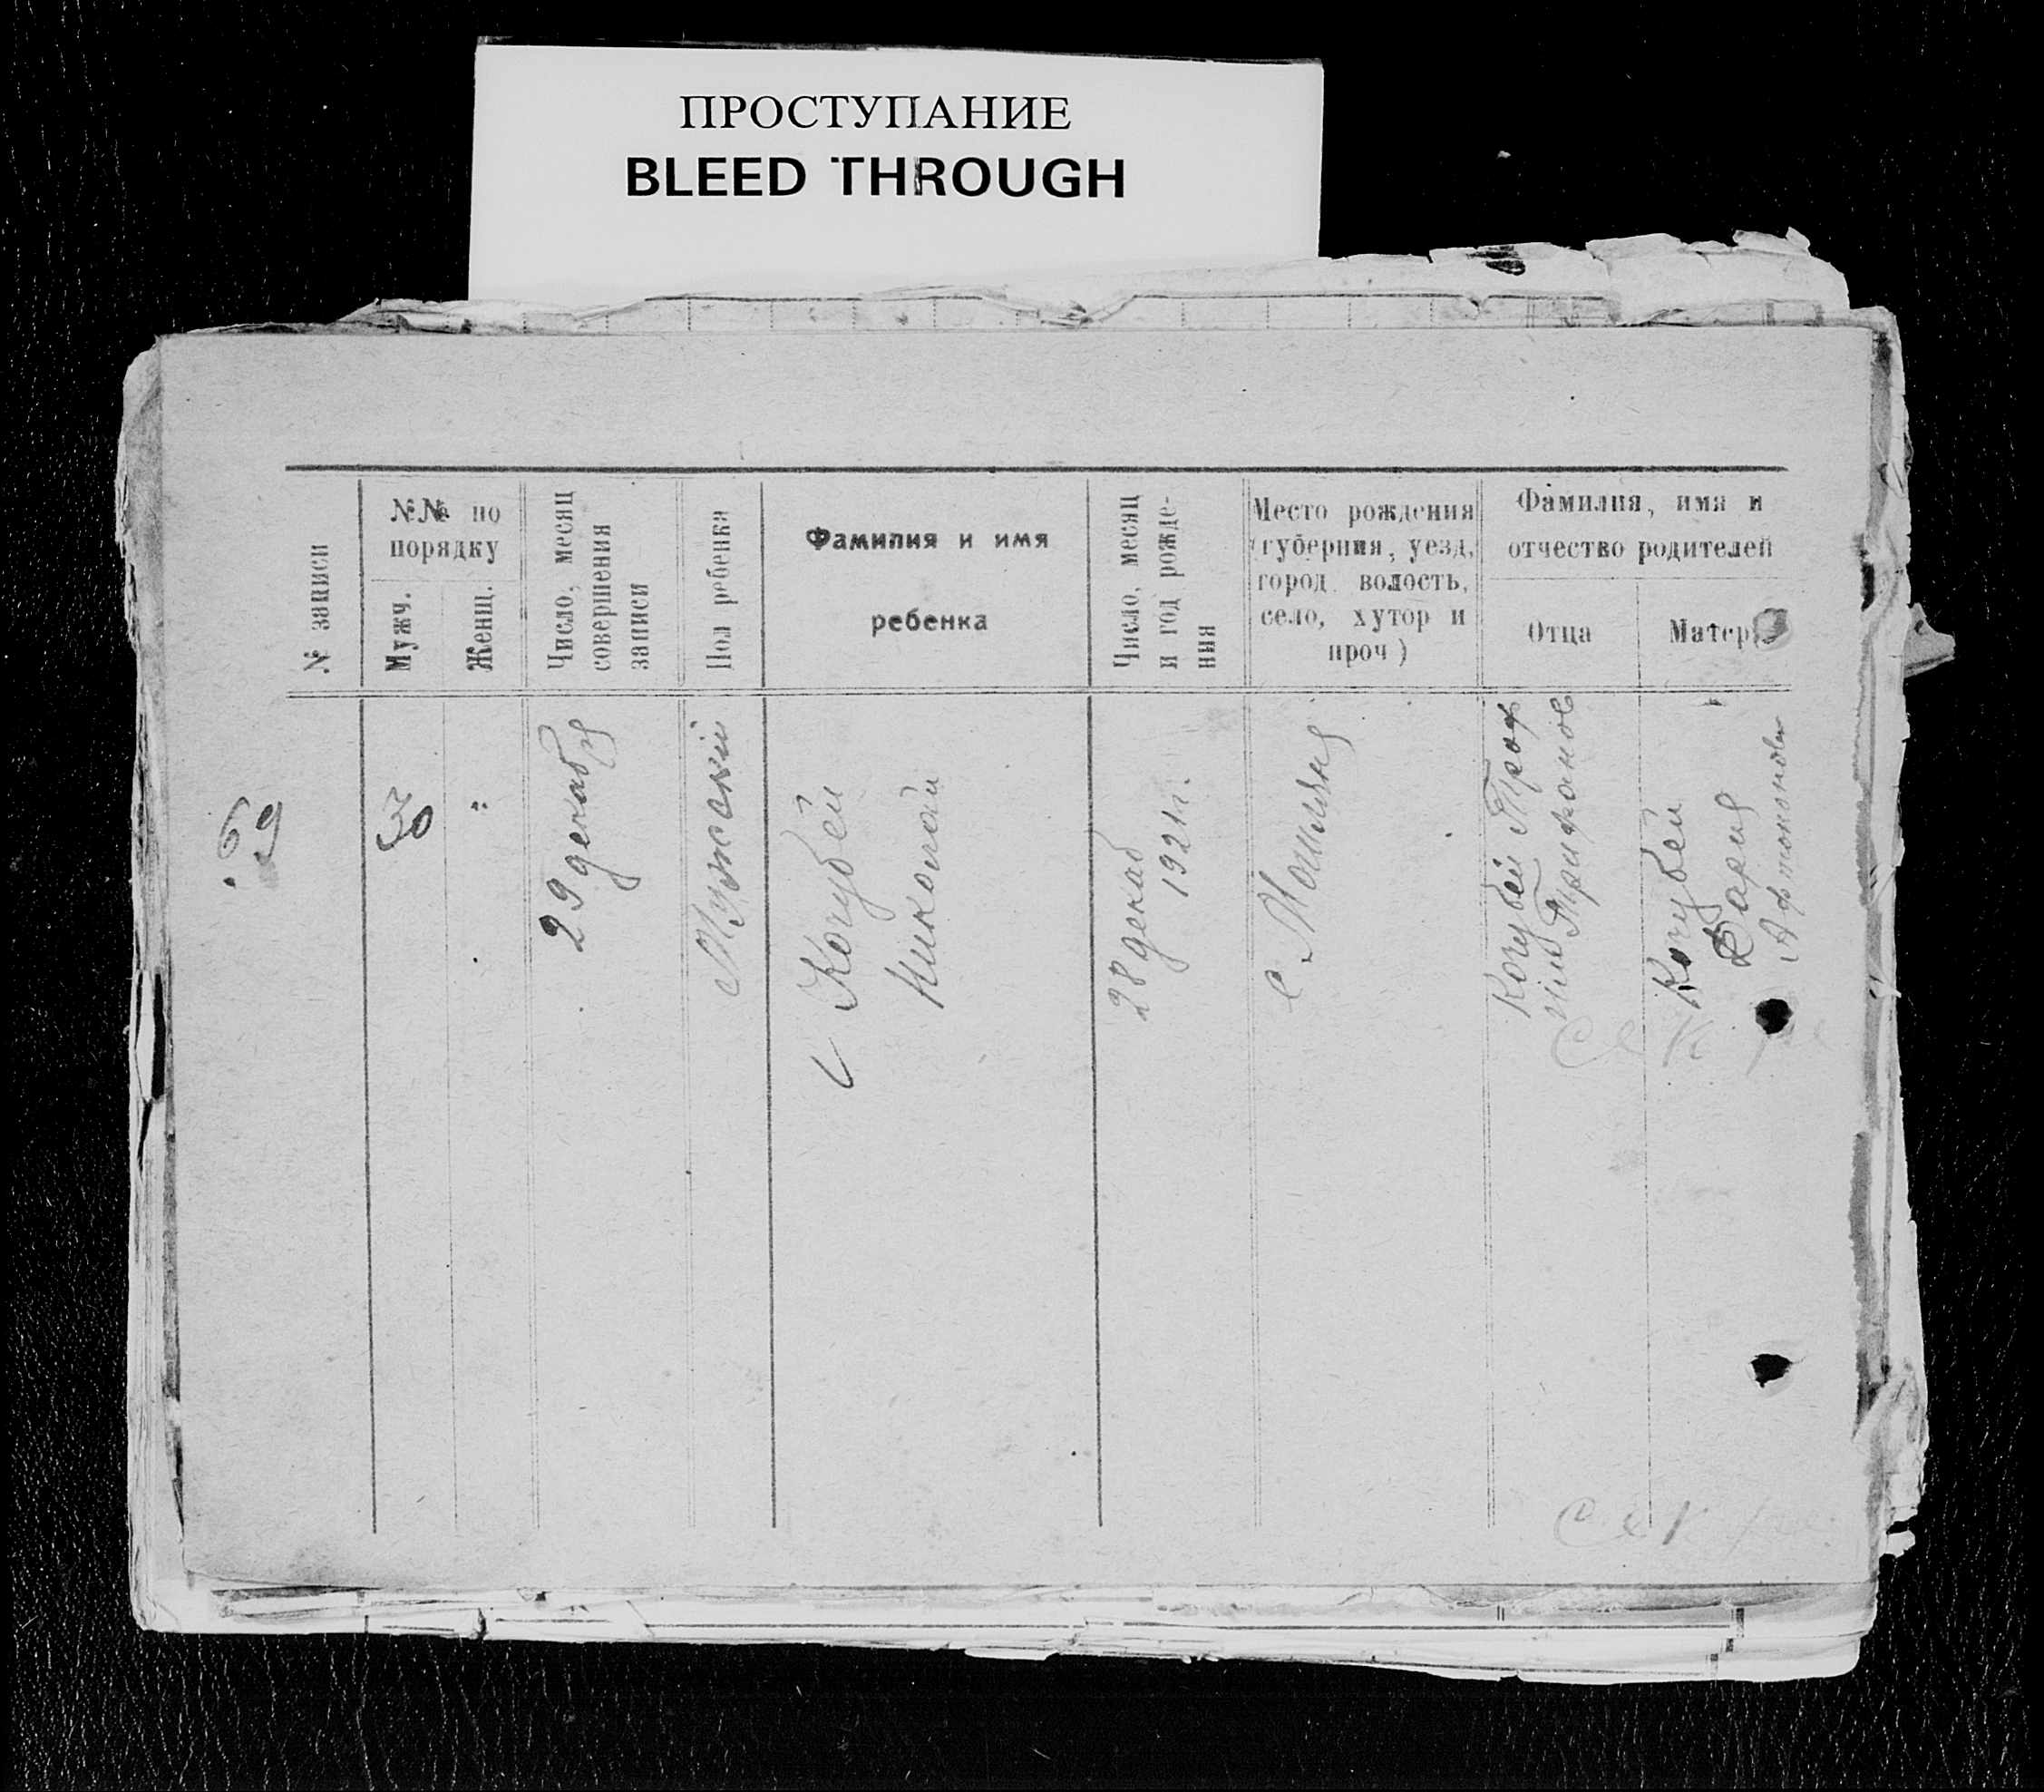 ПРОСТУПАНИЕ
BLEED THROUGH
№ записи
№№ по
порядку
Мужч.
Женщ.
Число, месяц
совершения
записи
Пол ребенка
Фамилия и имя
ребенка
Число, месяц
и год рожде-
ния
Место рождения
губерния, уезд,
город волость,
село, хутор и
проч)
Фамилия, имя и
отчество родителей
Отца
Матери
69
30
"
29 декабря
Мужский
Кочубей
Николай
28 декаб
1921г.
с
Кочубей Троф
им Трифонов
Кочубей
Дария
Афтономовна